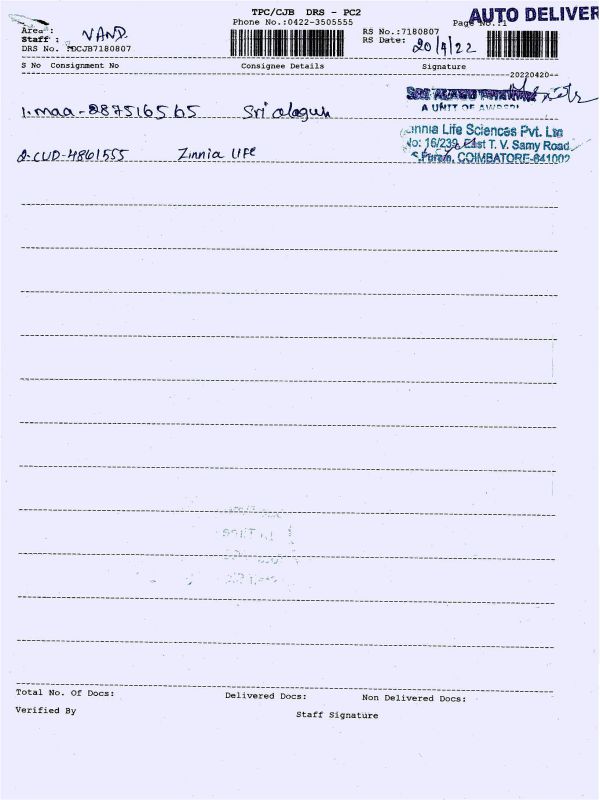 AUTO DELIVER
TPC/CJB DRS - PC2
Phone No.:0422-3505555
Page No.:1
Area : VAND
Staff :
RS No.:7180807
RS Date: 20/4/22
DRS No. DCJB7180807
S No Consignment No Consignee Details Signature
--20220420--
A UNIT OF
1. maa - 887516565 Sri alaguh
Zinnia Life Sciences Pvt. Ltd
No: 16/239, East T. V. Samy Road
COIMBATORE-641002
2. CUD-4861555 Zinnia LIFe
Total No. Of Docs: Delivered Docs: Non Delivered Docs:
Verified By Staff Signature